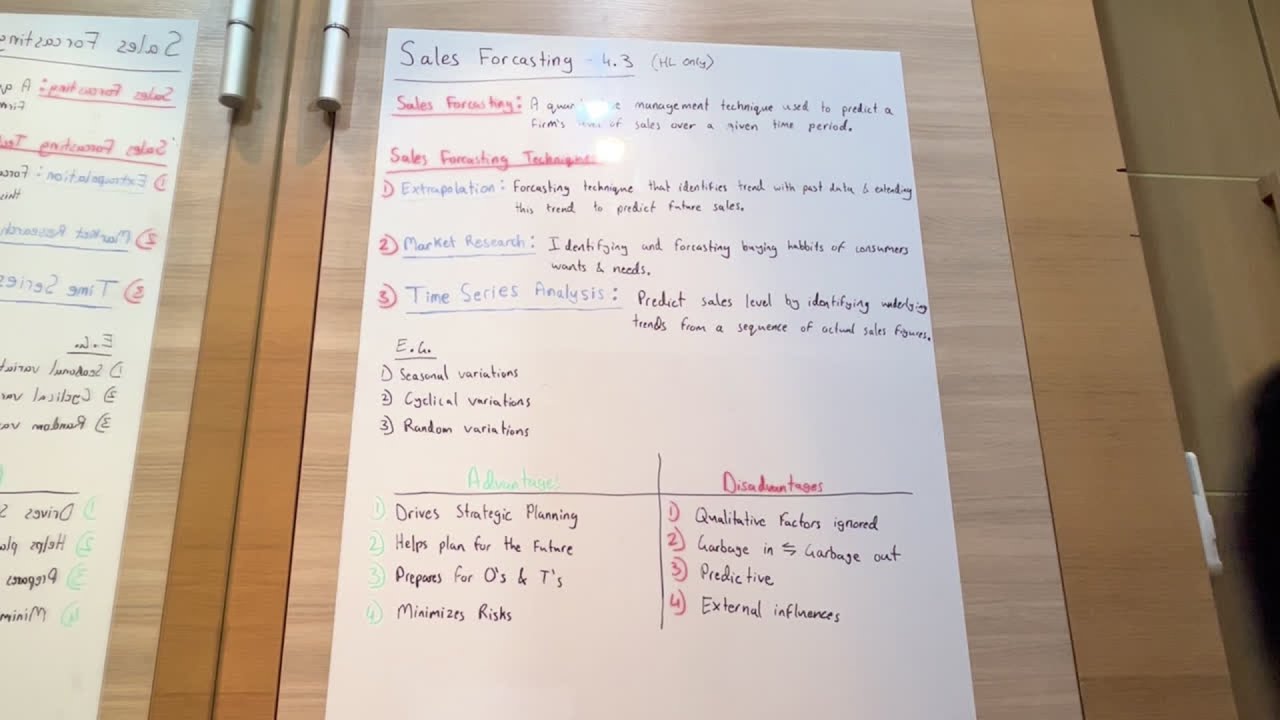 Sales Forcasting - 4.3 (HL only)
Sales Forcasting: A management technique used to predict a
firm's of sales over a given time period.
Sales Forcasting
1) Extrapolation: Forcasting technique that identifies trend with past data & extending
this trend to predict future sales.
2) Market Research: Identifying and forcasting buying habbits of consumers
wants & needs.
3) Time Series Analysis: Predict sales level by identifying underlying
trends from a sequence of actual sales figures.
E.G.
1) Seasonal variations
2) Cyclical variations
3) Random variations
Advantages Disadvantages
1) Drives Strategic Planning
2) Helps plan for the Future
3) Prepares for O's & T's
4) Minimizes Risks
1) Qualitative Factors ignored
2) Garbage in ⇆ Garbage out
3) Predictive
4) External influences